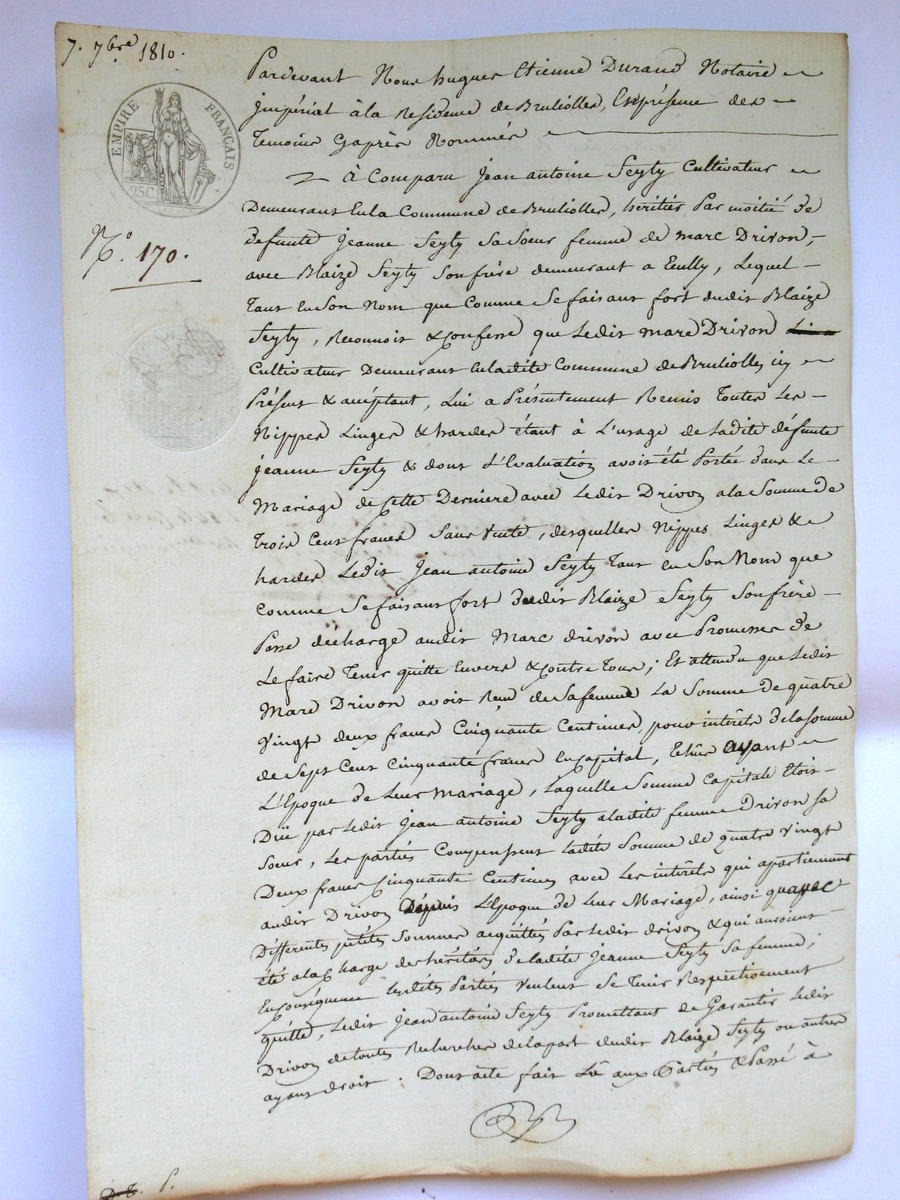 7. 7bre 1810.
EMPIRE FRANÇAIS
25C
No. 170.
Pardevant Nous hugues Etienne Durand Notaire
impérial à la Residence de Brullolles, En présence des
Temoins Cyaprès Nommés
À Comparu Jean antoine Seyty Cultivateur
Demeurant En la Commune de Brullolles, héritier Par moitié de
defunte Jeanne Seyty Sa Soeur femme de Marc Drivon,
avec Blaize Seyty Son frère demeurant a , Lequel
Tant En Son Nom que Comme Se faisant fort dudit Blaize
Seyty, Reconnoit & Confesse que Ledit Marc Drivon
Cultivateur Demeurant En ladite Commune de Brullolles icy
Présent & acceptant, Lui a Présentement Remis Toutes Les
Nippes Linges & hardes étant à L'usage de Ladite défunte
Jeanne Seyty & dont L'Evaluation avoit été Portée dans Le
Mariage de Cette Derniere avec Ledit Drivon a la Somme de
Trois Cent francs Sans Vente, desquelles Nippes Linges &
hardes Ledit Jean antoine Seyty Tant en Son Nom que
comme Se faisant fort dudit Blaize Seyty Son frère
Passe décharge audit Marc drivon avec Promesse de
Le faire Tenir quitte Envers & Contre Tous; Et attendu que Ledit
Marc Drivon avoit Reçu de Sa femme La Somme de quatre
Vingt deux francs Cinquante Centimes, pour intérêts de la Somme
de Sept Cent Cinquante francs En Capital, Echus avant
L'Epoque de Leur Mariage, Laquelle Somme Capitale Etoit
Düe par Ledit Jean antoine Seyty a ladite femme Drivon sa
Soeur, Les parties Compensent Ladite Somme de quatre Vingt
Deux francs Cinquante Centimes avec Les intérêts qui apartiennent
audit Drivon Depuis L'Epoque de Leur Mariage, ainsi qu'avec
Différentes petites Sommes acquittées Par Ledit drivon & qui auroient
été a la Charge des héritiers de ladite Jeanne Seyty Sa femme;
En Conséquence Lesdites Parties Veulent Se Tenir Respectivement
quitte, Ledit Jean antoine Seyty Promettant de Garantir Ledit
Drivon de toutes Recherches de la part dudit Blaize Seyty ou autres
ayans droit. Dont acte fait Lû aux Parties & Passé à
P.